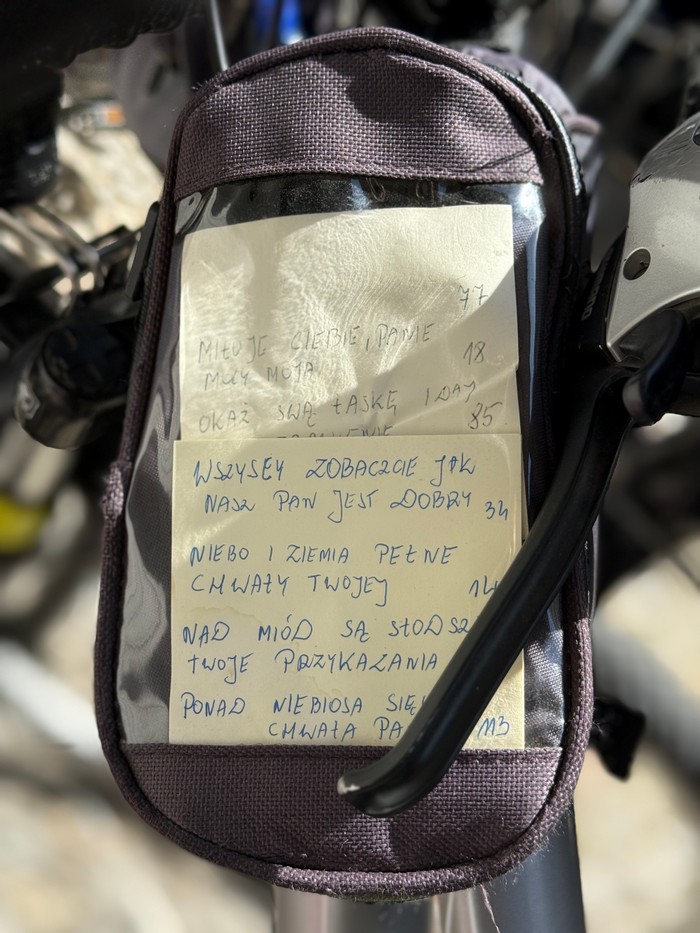 77
MIŁUJĘ CIEBIE, PANIE
MOCY MOJA 18
OKAŻ SWĄ ŁASKĘ I DAJ
85
WSZYSCY ZOBACZCIE JAK
NASZ PAN JEST DOBRY 34
NIEBO I ZIEMIA PEŁNE
CHWAŁY TWOJEJ
NAD MIÓD SĄ SŁODSZ
TWOJE PRZYKAZANIA
PONAD NIEBIOSA SIĘ
CHWAŁA PA 113